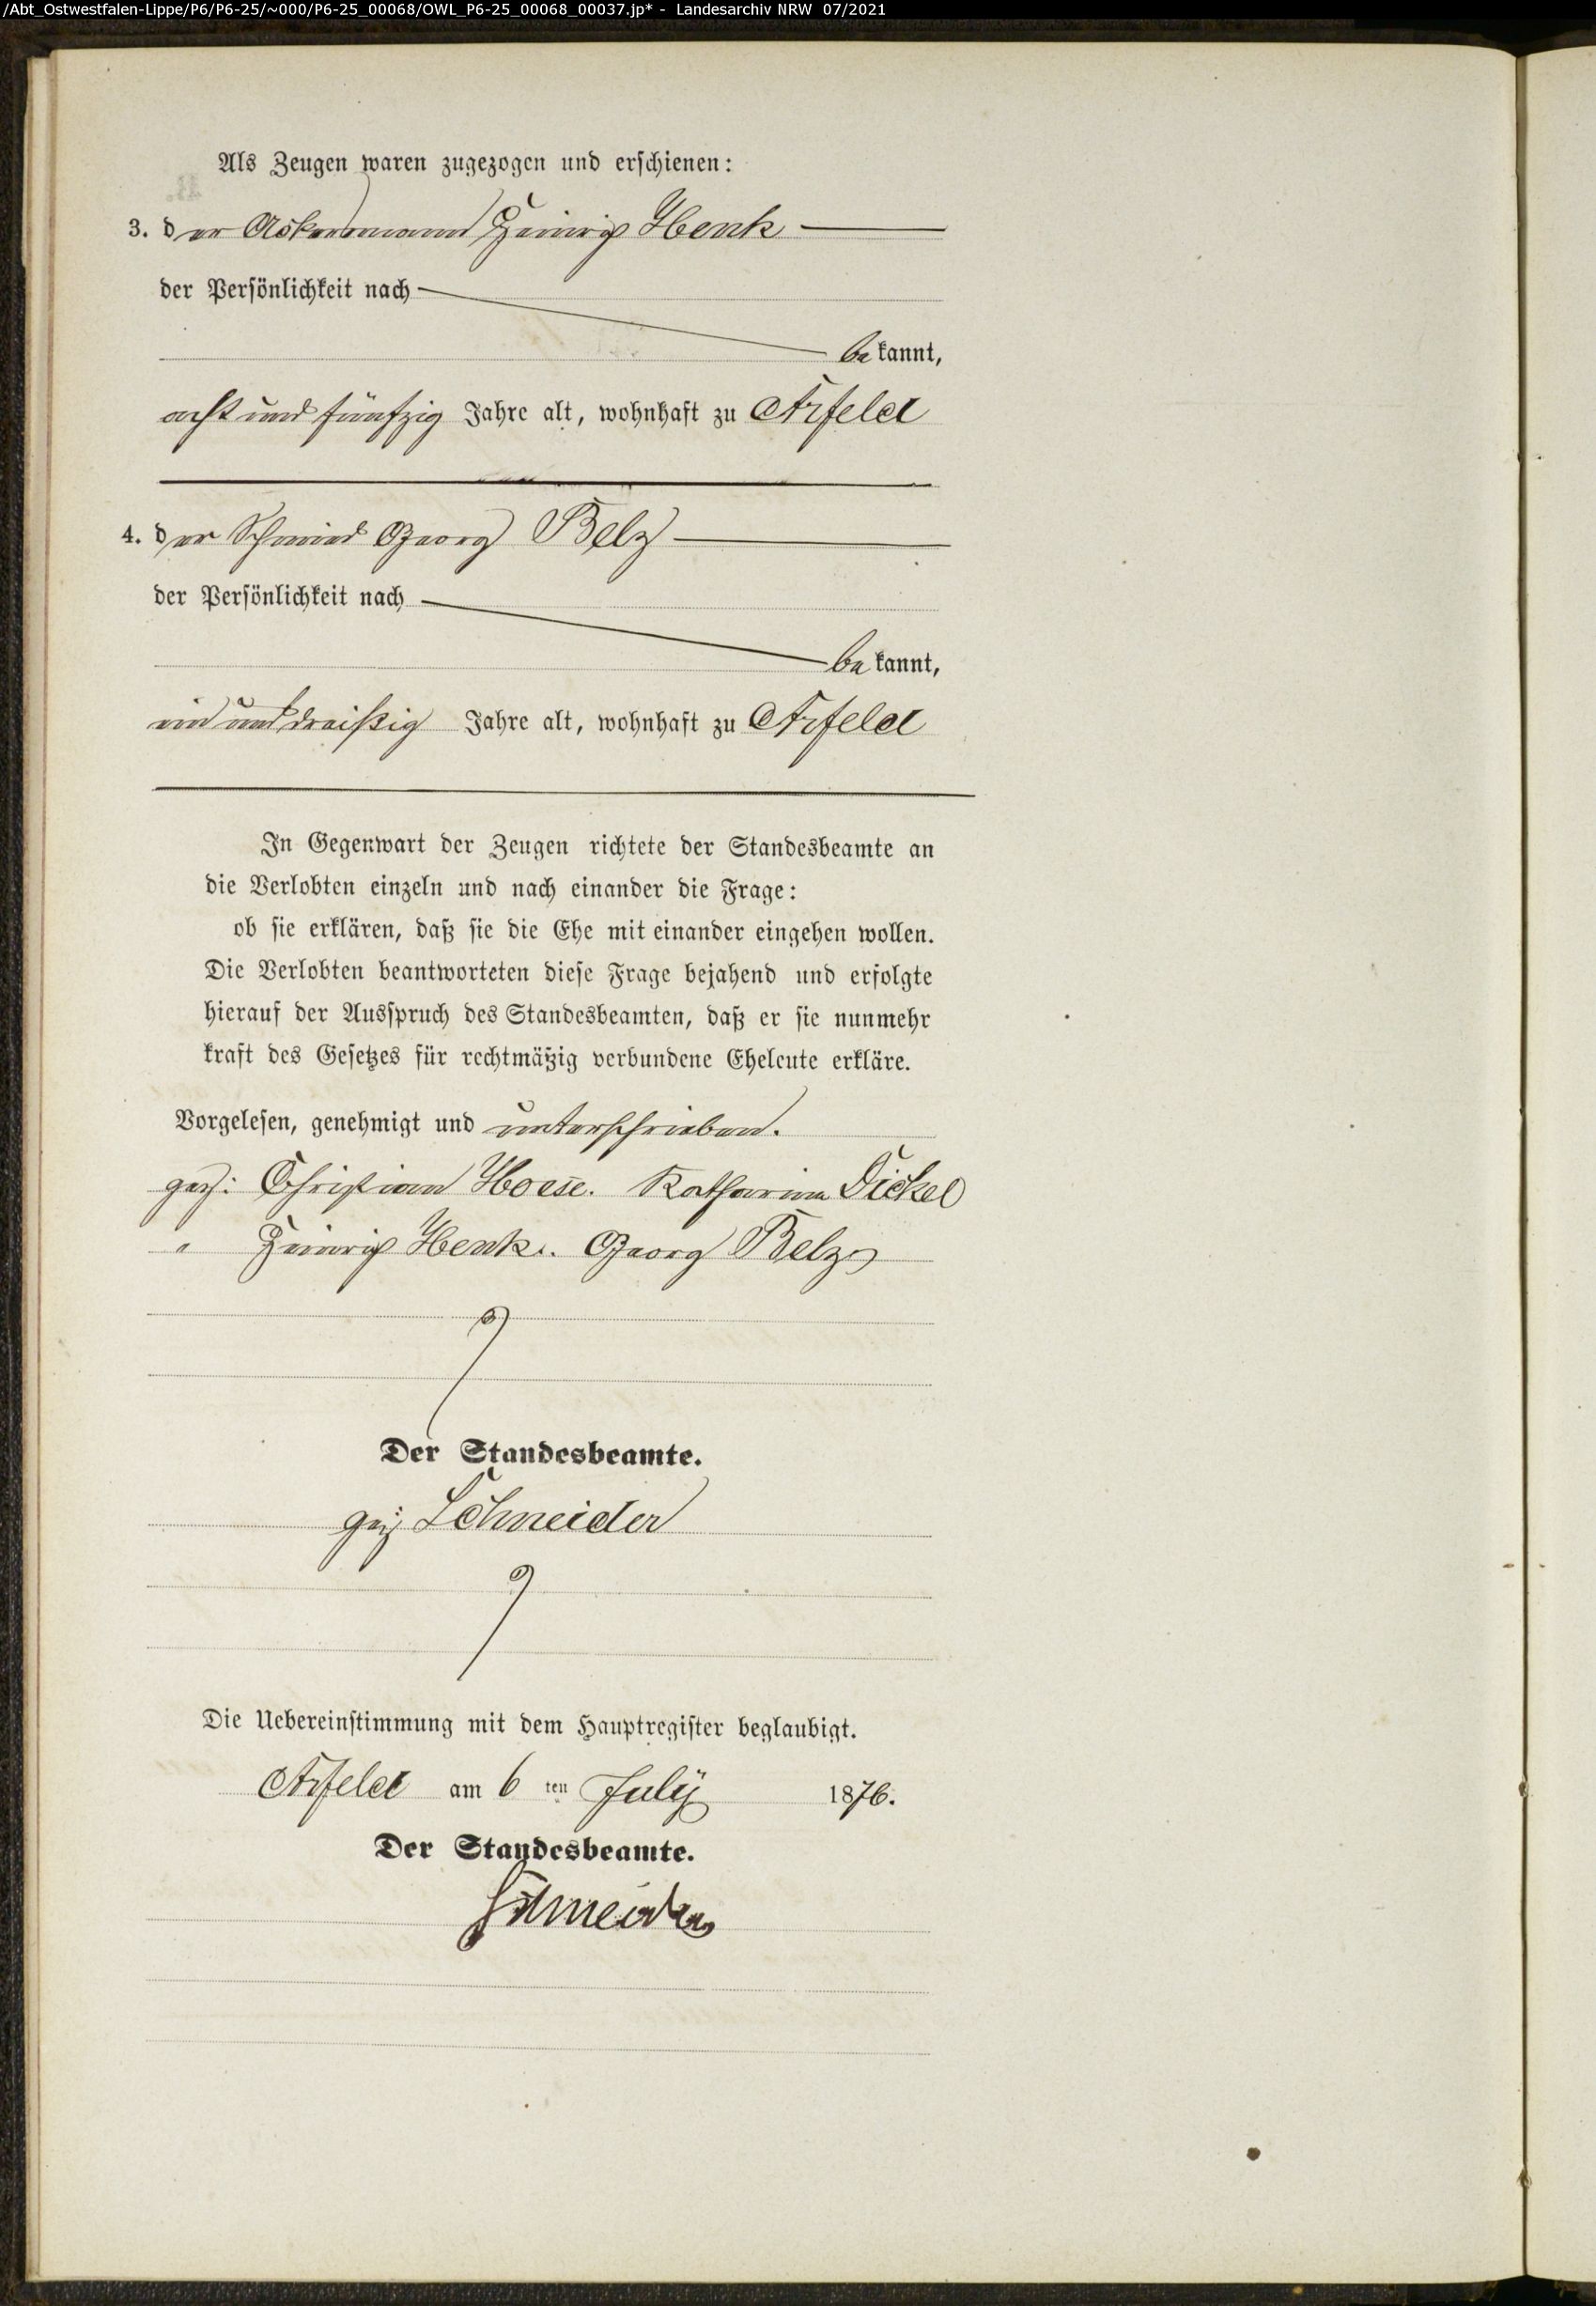 /Abt_Ostwestfalen-Lippe/P6/P6-25/~000/P6-25_00068/OWL_P6-25_00068_00037.jp* - Landesarchiv NRW 07/2021
Als Zeugen waren zugezogen und erschienen:
3. der Ackersmann Heinrich Henk
der Persönlichkeit nach
bekannt,
acht und fünfzig Jahre alt, wohnhaft zu Arfeld
4. der Schmied Georg Belz
der Persönlichkeit nach
bekannt,
ein und dreißig Jahre alt, wohnhaft zu Arfeld
In Gegenwart der Zeugen richtete der Standesbeamte an
die Verlobten einzeln und nach einander die Frage:
ob sie erklären, daß sie die Ehe mit einander eingehen wollen.
Die Verlobten beantworteten diese Frage bejahend und erfolgte
hierauf der Ausspruch des Standesbeamten, daß er sie nunmehr
kraft des Gesetzes für rechtmäßig verbundene Eheleute erkläre.
Vorgelesen, genehmigt und unterschrieben.
gez: Christian Hoese. Katharina Dickel
" Heinrich Henk. Georg Belz
Der Standesbeamte.
gez Schneider
Die Uebereinstimmung mit dem Hauptregister beglaubigt.
Arfeld am 6 ten July 1876.
Der Standesbeamte.
Schneider